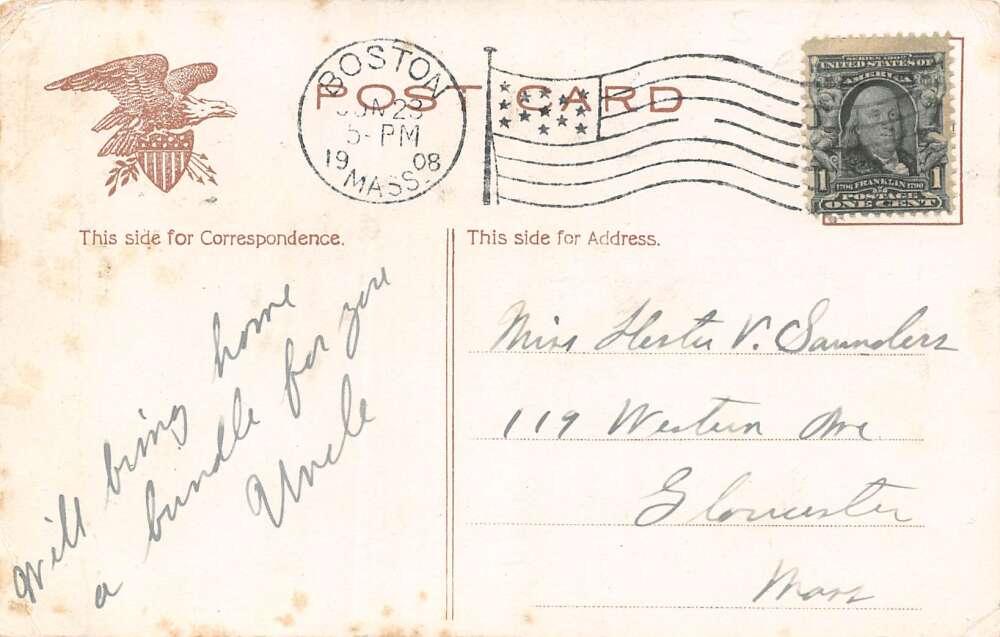 POST CARD
BOSTON
JUN 23
5-PM
19 08
MASS.
SERIES 1902
UNITED STATES OF
AMERICA
1 1706 FRANKLIN 1790 1
POSTAGE
ONE CENT
This side for Correspondence.
Will bring home
a bundle for you
Uncle
This side for Address.
Miss Hester V. Saunders
119 Western Ave
Gloucester
Mass